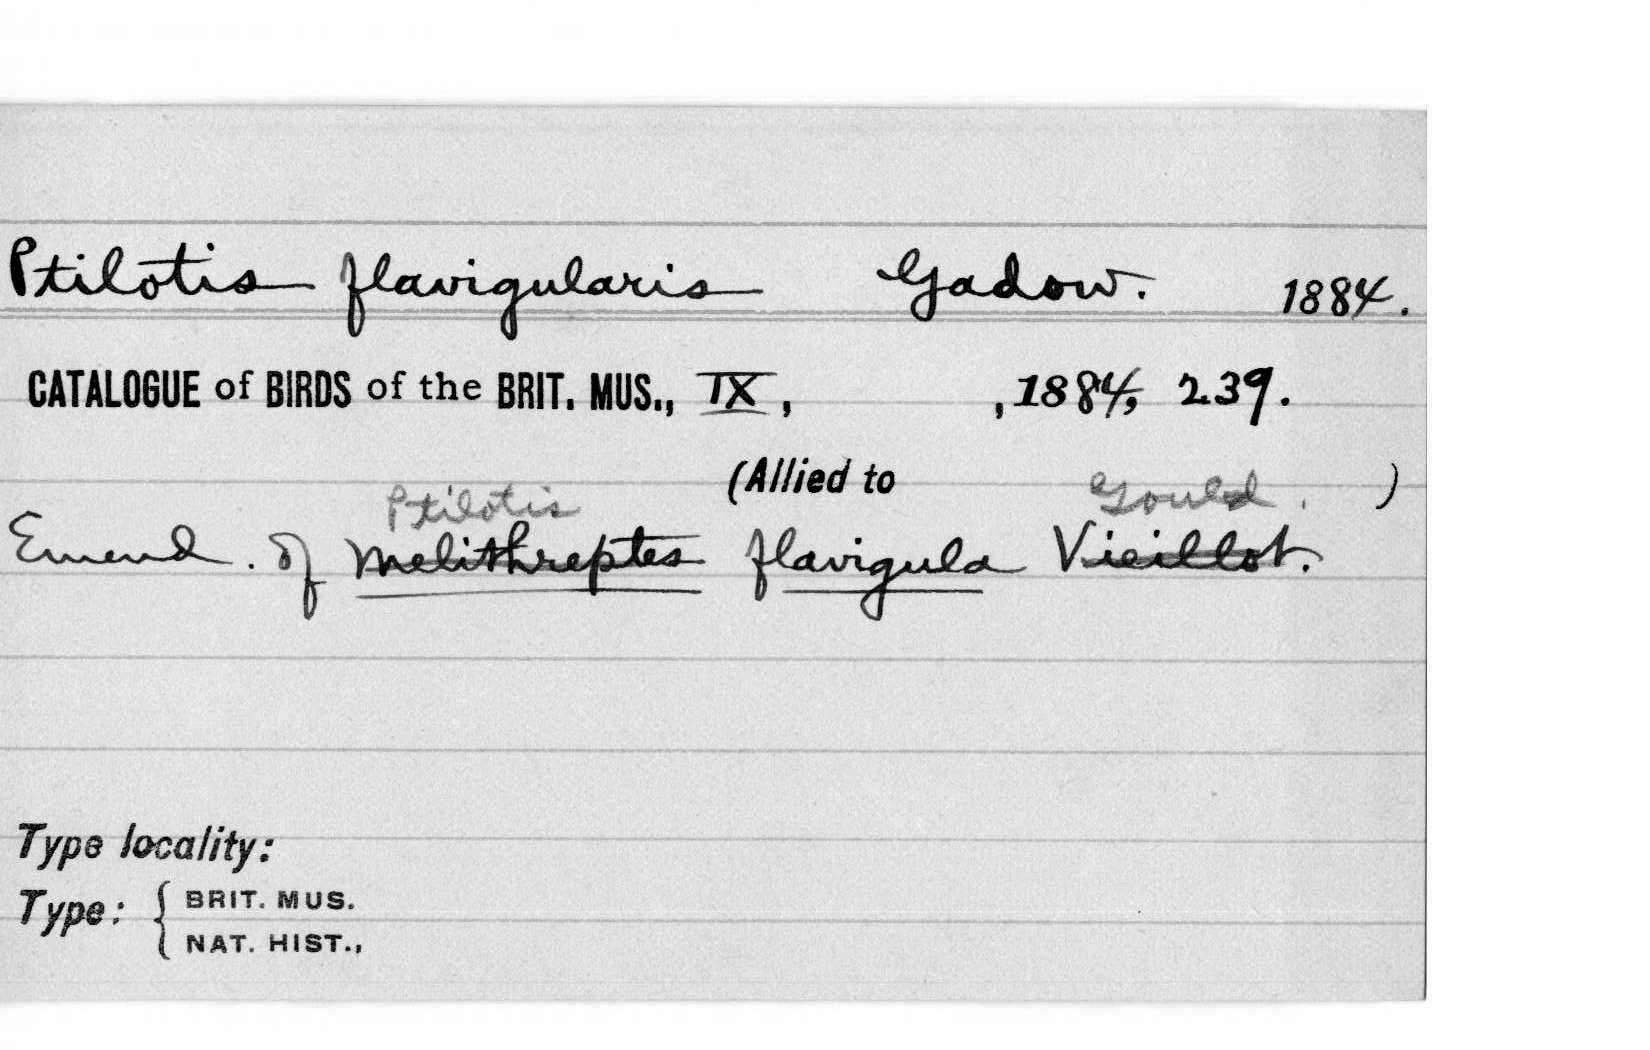 Ptilotis flavigularis Gadow. 1884.
CATALOGUE of BIRDS of the BRIT. MUS., IX, , 1884, 239.
(Allied to )
Ptilotis Gould.
Emend. of Melithreptes flavigula Vieillot.
Type locality:
Type: { BRIT. MUS.
NAT. HIST.,